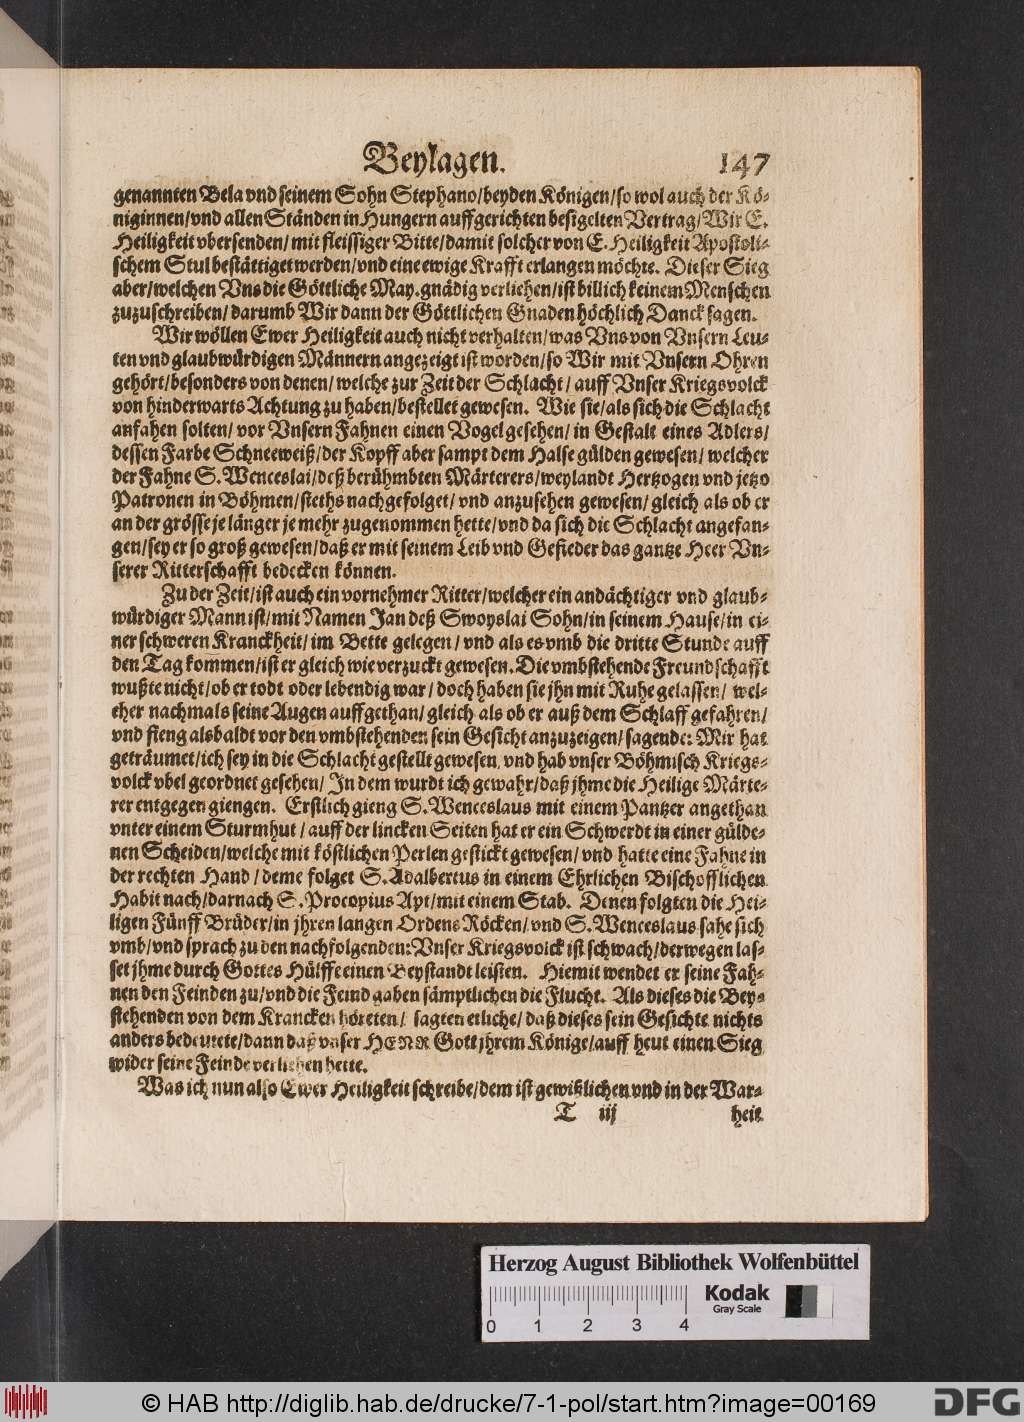 Beylagen. 147
genannten Bela vnd seinem Sohn Stephano/beyden Königen/so wol auch der Kö-
niginnen/vnd allen Ständen in Hungern auffgerichten besigelten Vertrag/Wir E.
Heiligkeit vbersenden/mit fleissiger Bitte/damit solcher von E. Heiligkeit Apostoli-
schem Stul bestättiget werden/vnd eine ewige Krafft erlangen möchte. Dieser Sieg
aber/welchen Vns die Göttliche May. gnädig verliehen/ist billich keinem Menschen
zuzuschreiben/darumb Wir dann der Göttlichen Gnaden höchlich Danck sagen.
Wir wöllen Ewer Heiligkeit auch nicht verhalten/was Vns von Vnsern Leu-
ten vnd glaubwürdigen Männern angezeigt ist worden/so Wir mit Vnsern Ohren
gehört/besonders von denen/welche zur Zeit der Schlacht/auff Vnser Kriegsvolck
von hinderwarts Achtung zu haben/bestellet gewesen. Wie sie/als sich die Schlacht
anfahen solten/vor Vnsern Fahnen einen Vogel gesehen/in Gestalt eines Adlers/
dessen Farbe Schneeweiß/der Kopff aber sampt dem Halse gülden gewesen/welcher
der Fahne S. Wenceslai/deß berühmbten Märterers/weylandt Hertzogen vnd jetzo
Patronen in Böhmen/steths nachgefolget/vnd anzusehen gewesen/gleich als ob er
an der grösse je länger je mehr zugenommen hette/vnd da sich die Schlacht angefan-
gen/sey er so groß gewesen/daß er mit seinem Leib vnd Gefieder das gantze Heer Vn-
serer Ritterschafft bedecken können.
Zu der Zeit/ist auch ein vornehmer Ritter/welcher ein andächtiger vnd glaub-
würdiger Mann ist/mit Namen Jan deß Swoyslai Sohn/in seinem Hause/in ei-
ner schweren Kranckheit/im Bette gelegen/vnd als es vmb die dritte Stunde auff
den Tag kommen/ist er gleich wie verzuckt gewesen. Die vmbstehende Freundschafft
wußte nicht/ob er todt oder lebendig war/doch haben sie jhn mit Ruhe gelassen/wel-
cher nachmals seine Augen auffgethan/gleich als ob er auß dem Schlaff gefahren/
vnd fieng alsbaldt vor den vmbstehenden sein Gesicht anzuzeigen/sagende: Mir hat
geträumet/ich sey in die Schlacht gestellt gewesen, vnd hab vnser Böhmisch Kriegs-
volck vbel geordnet gesehen/In dem wurdt ich gewahr/daß jhme die Heilige Märte-
rer entgegen giengen. Erstlich gieng S. Wenceslaus mit einem Pantzer angethan
vnter einem Sturmhut/auff der lincken Seiten hat er ein Schwerdt in einer gülde-
nen Scheiden/welche mit köstlichen Perlen gestickt gewesen/vnd hatte eine Fahne in
der rechten Hand/deme folget S. Adalbertus in einem Ehrlichen Bischofflichen
Habit nach/darnach S. Procopius Apt/mit einem Stab. Denen folgten die Hei-
ligen Fünff Brüder/in jhren langen Ordens Röcken/vnd S. Wenceslaus sahe sich
vmb/vnd sprach zu den nachfolgenden: Vnser Kriegsvolck ist schwach/derwegen las-
set jhme durch Gottes Hülffe einen Beystandt leisten. Hiemit wendet er seine Fah-
nen den Feinden zu/vnd die Feind gaben sämptlichen die Flucht. Als dieses die Bey-
stehenden von dem Krancken höreten/sagten etliche/daß dieses sein Gesichte nichts
anders bedeutete/dann daß vnser HERR Gott jhrem Könige/auff heut einen Sieg
wider seine Feinde verliehen hette.
Was ich nun also Ewer Heiligkeit schreibe/dem ist gewißlichen vnd in der War-
T iij heit
Herzog August Bibliothek Wolfenbüttel
Kodak
Gray Scale
0 1 2 3 4
© HAB http://diglib.hab.de/drucke/7-1-pol/start.htm?image=00169
DFG